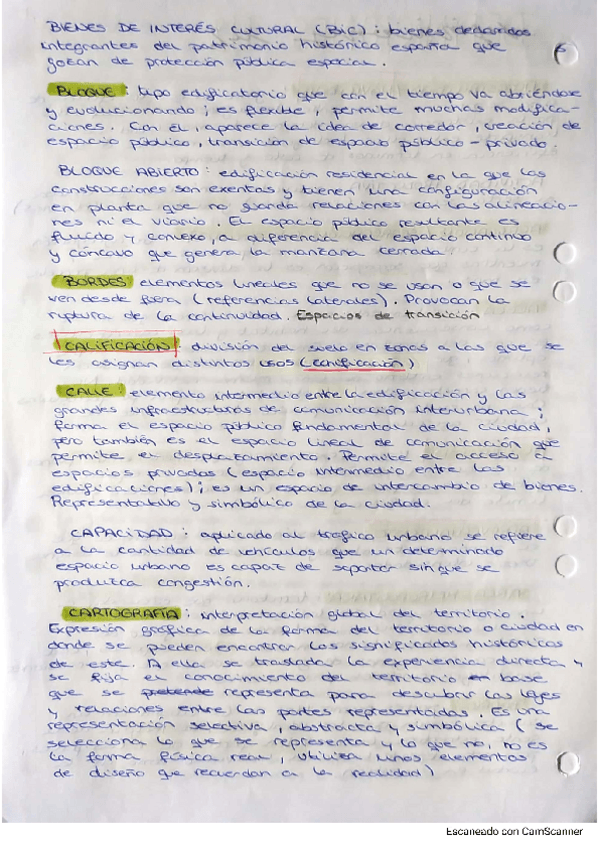 BIENES DE INTERÉS CULTURAL (BIC) : bienes declarados
integrantes del patrimonio histórico español que
gozan de protección pública especial.
6
BLOQUE : tipo edificatorio que con el tiempo va abriéndose
y evolucionando ; es flexible , permite muchas modifica-
ciones . Con él , aparece la idea de corredor , creación de
espacio público , transición de espacio público - privado .
BLOQUE ABIERTO : edificación residencial en la que las
construcciones son exentas y tienen una configuración
en planta que no guarda relaciones con las alineacio-
nes ni el viario . El espacio público resultante es
fluido y convexo , a diferencia del espacio continuo
y cóncavo que genera la manzana cerrada .
BORDES : elementos lineales que no se usan o que se
ven desde fuera (referencias laterales) . Provocan la
ruptura de la continuidad . Espacios de transición
CALIFICACIÓN : división del suelo en zonas a las que se
les asignan distintos usos (zonificación)
CALLE : elemento intermedio entre la edificación y las
grandes infraestructuras de comunicación interurbana ;
forma el espacio público fundamental de la ciudad ,
pero también es el espacio lineal de comunicación que
permite el desplazamiento . Permite el acceso a
espacios privados (espacio intermedio entre las
edificaciones) ; es un espacio de intercambio de bienes .
Representativo y simbólico de la ciudad .
CAPACIDAD : aplicado al tráfico urbano se refiere
a la cantidad de vehículos que un determinado
espacio urbano es capaz de soportar sin que se
produzca congestión .
CARTOGRAFÍA : interpretación global del territorio .
Expresión gráfica de la forma del territorio o ciudad en
donde se pueden encontrar los significados históricos
de este . A ella se traslada la experiencia directa y
se fija el conocimiento del territorio en base
que se pretende representa para descubrir las leyes
y relaciones entre las partes representadas . Es una
representación selectiva , abstracta y simbólica ( se
selecciona lo que se representa y lo que no , no es
la forma física real , utiliza unos elementos
de diseño que recuerdan a la realidad )
Escaneado con CamScanner